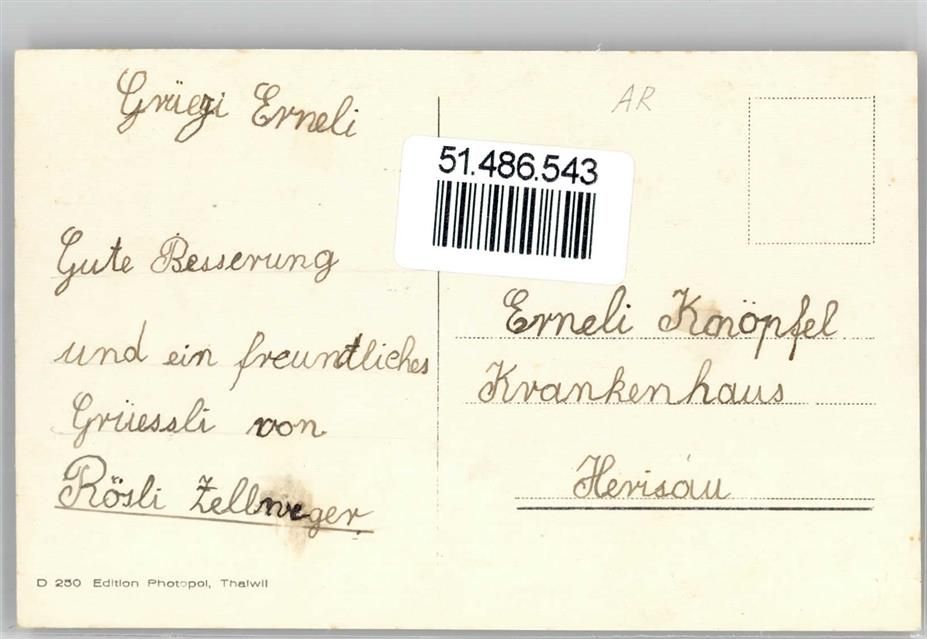 Grüezi Erneli
Gute Besserung
und ein freundtliches
Grüessli von
Rösli Zellweger.
D 250 Edition Photopol, Thalwil
AR
51.486.543
Erneli Knöpfel
Krankenhaus
Herisau